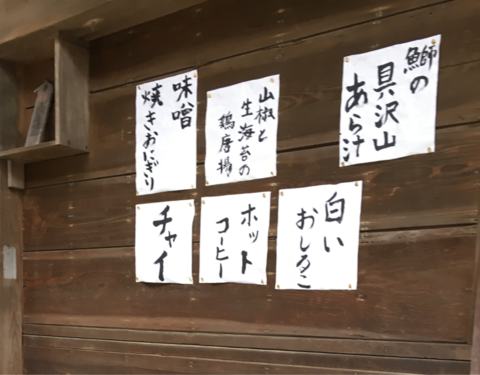 鰤の
具沢山
あら汁
山椒と
生海苔の
鶏唐揚
味噌
焼きおにぎり
白い
おしるこ
ホット
コーヒー
チャイ